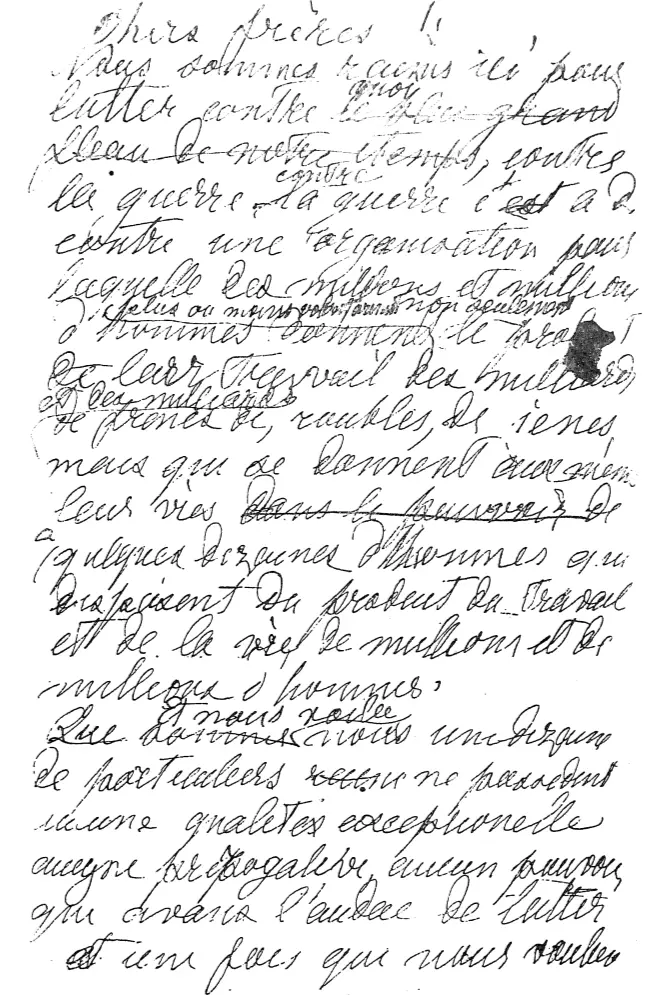 Chers frères !
Nous sommes réunis ici pour
lutter contre quoi le plus grand
fléau de notre temps, contre
la guerre, contre la guerre c'est a d.
contre une organisation pour
laquelle des millions et millions
plus ou moins volontairement non seulement
d'hommes donnent le pro
de leur travail des milliards
et des milliards
de francs de, roubles, de ienes,
mais qui se donnent eux mêm
leur vies dans le pouvoir de
a qulques dizaines d'hommes qui
disposent du produit du travail
et de la vie, de millions et de
millions d'hommes,
Et nous voulee
Que sommes nous une dizaine
de particuliers ne possedent
aucune qualités exceptionelle
aucune prérogative, aucun pouvoir,
qui avons l'audac de lutter
et une fois que nous voulon